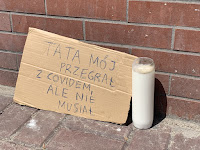 TATA MÓJ
PRZEGRAŁ
Z COVIDEM,
ALE NIE
MUSIAŁ